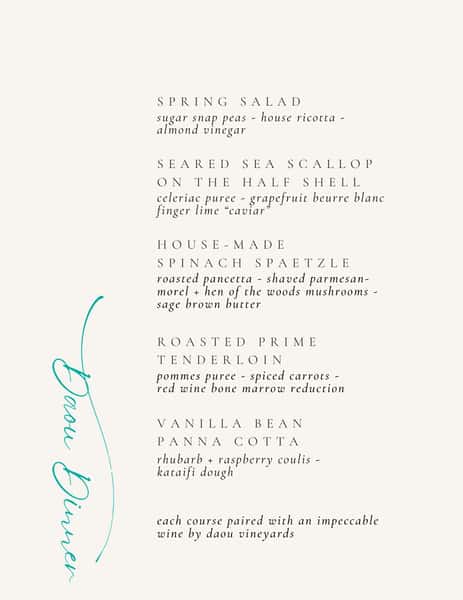 SPRING SALAD
sugar snap peas - house ricotta -
almond vinegar
SEARED SEA SCALLOP
ON THE HALF SHELL
celeriac puree - grapefruit beurre blanc
finger lime "caviar"
HOUSE-MADE
SPINACH SPAETZLE
roasted pancetta - shaved parmesan-
morel + hen of the woods mushrooms -
sage brown butter
ROASTED PRIME
TENDERLOIN
pommes puree - spiced carrots -
red wine bone marrow reduction
VANILLA BEAN
PANNA COTTA
rhubarb + raspberry coulis -
kataifi dough
each course paired with an impeccable
wine by daou vineyards
Daou Dinner